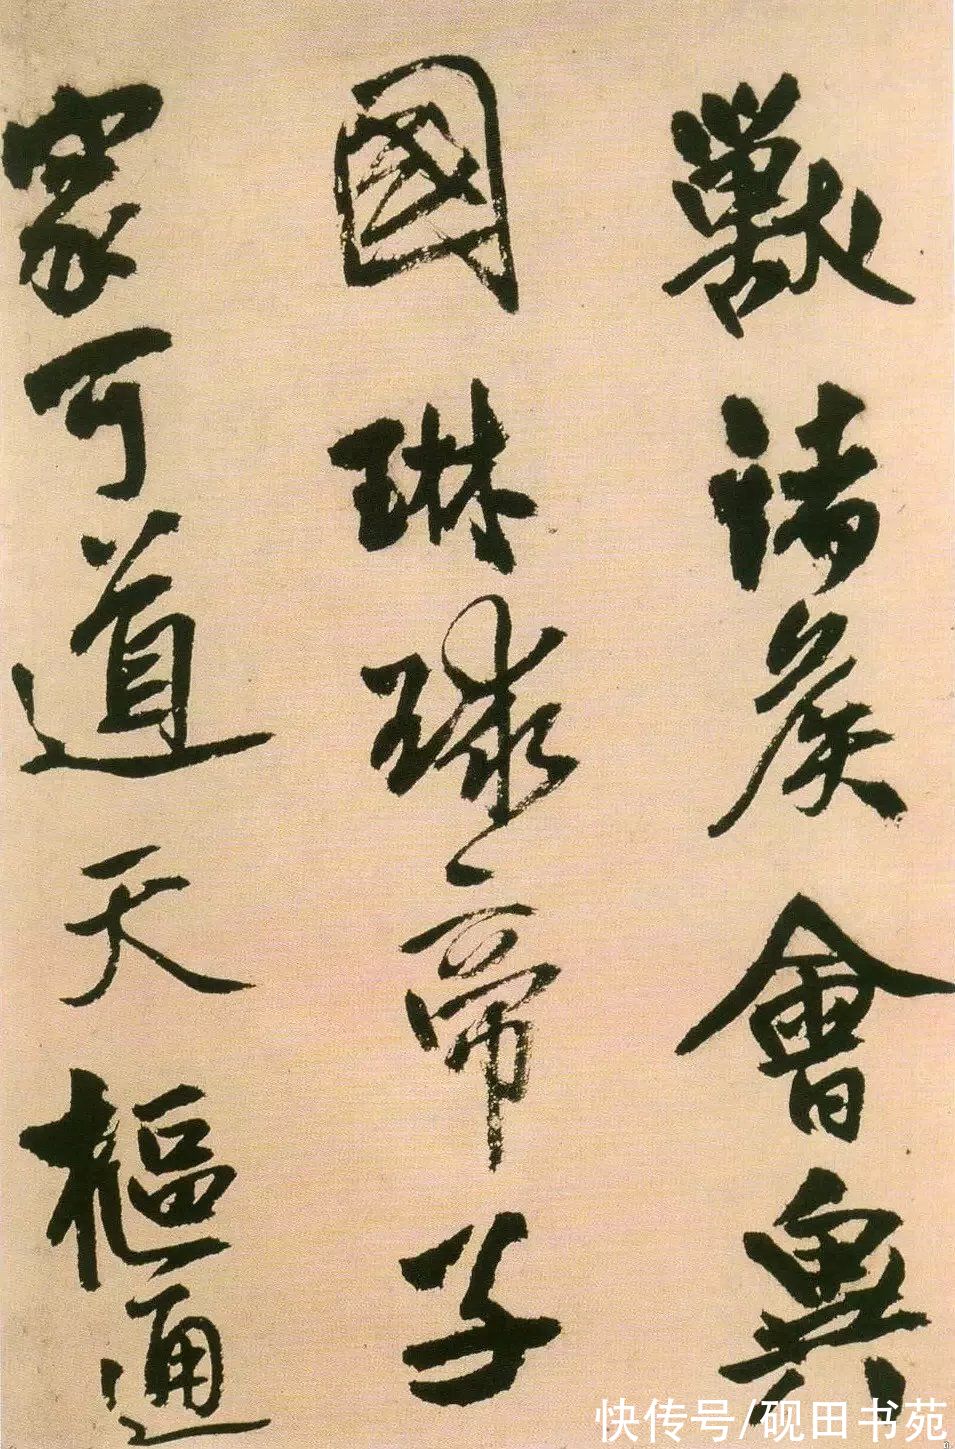 獸諸矦會異
國琳球帝子
家可道天樞通
快传号/砚田书苑